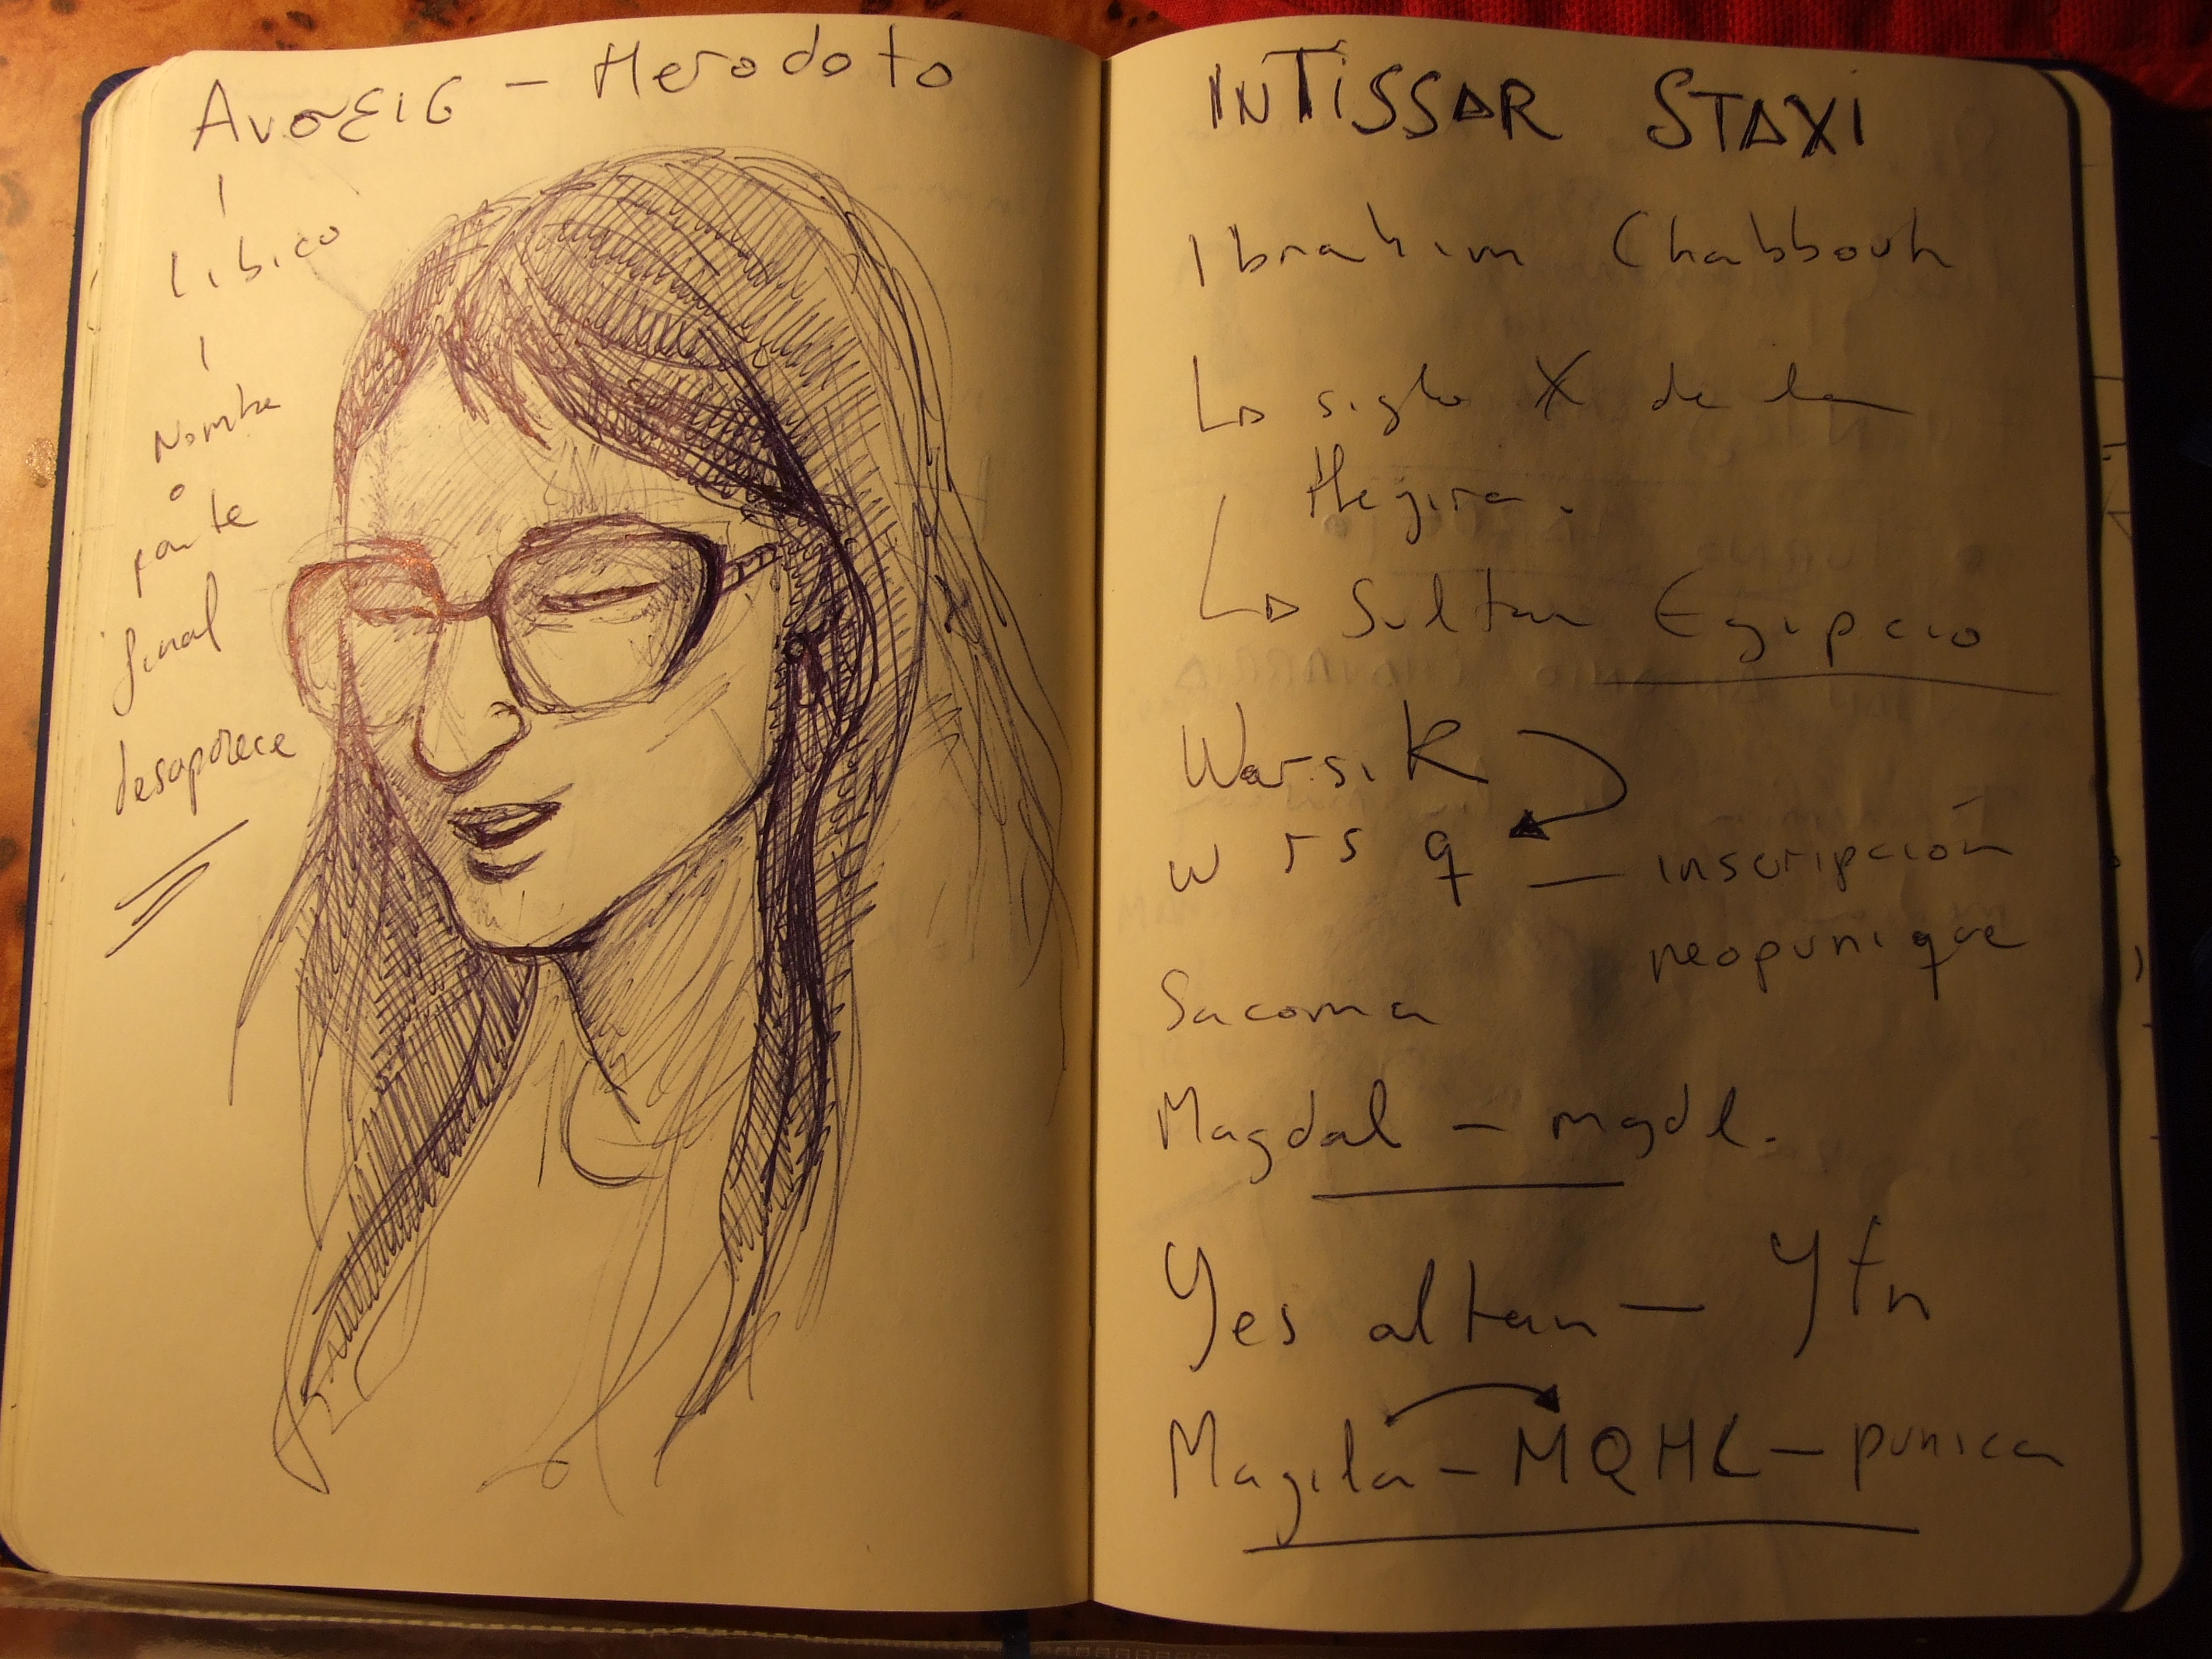 Ανσεις – Herodoto
Libico
Nombre
o
parte
final
desaparece
INTISSAR STAXI
Ibrahim Chabbouh
siglo X de la
Hegira.
Sultan Egipcio
WarsiK
w r s q – inscripción
neopunique
Sacoma
Magdal – mgdl.
Yes altan – Ytn
Magila – MQHL – punica